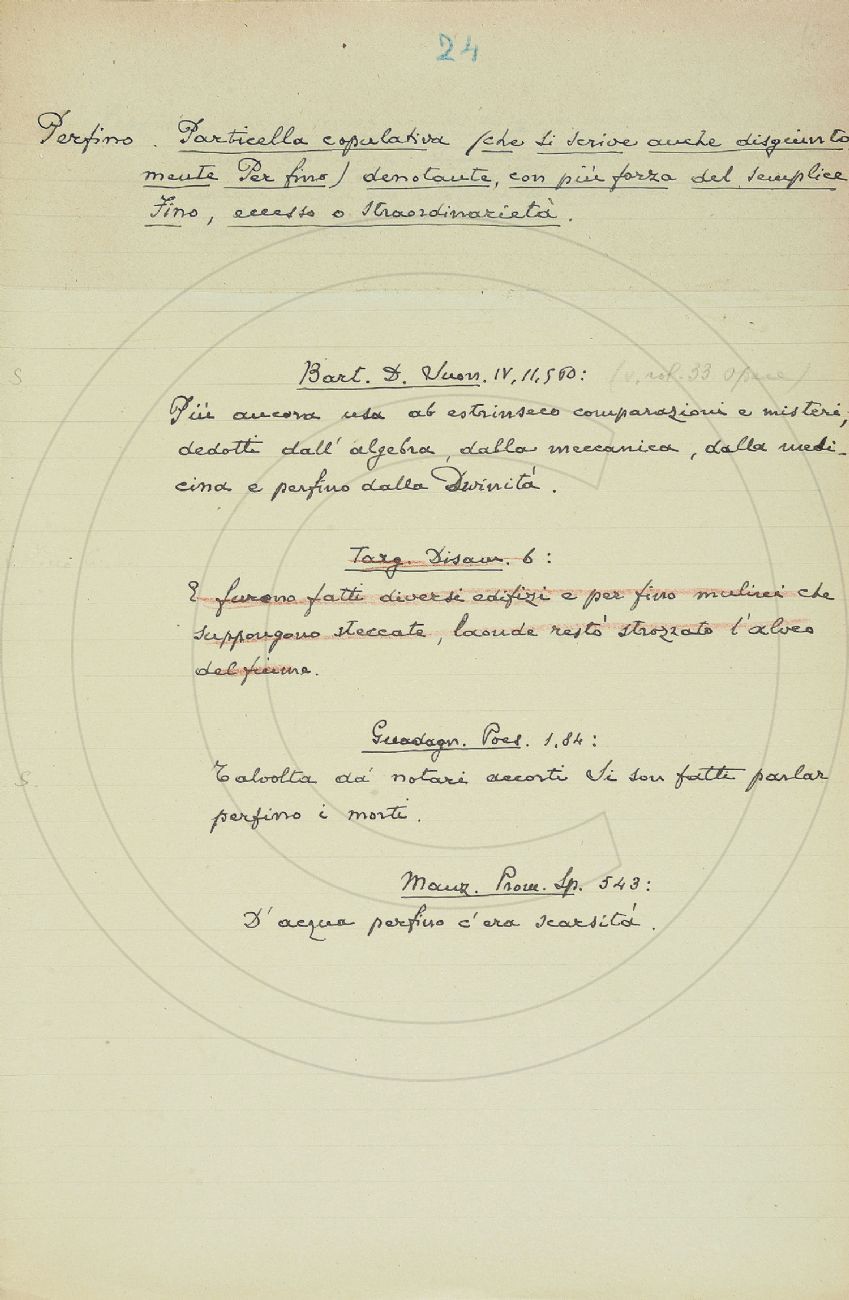 24
Perfino. Particella copulativa (che si scrive anche disgiunta
mente Per fino) denotante, con più forza del semplice
Fino, eccesso o straordinarietà.
S Bart. D. Suon. IV, 11, 560: (v. vol. 33 Opere)
Più ancora usa ab estrinseco comparazioni e misteri,
dedotti dall'algebra, dalla meccanica, dalla medi-
cina e perfino dalla Divinità.
Targ. Disam. 6:
E furono fatti diversi edifizi e per fino mulini che
suppongono steccate, laonde restò strozzato l'alveo
del fiume.
Guadagn. Poes. 1, 84:
S. Talvolta da' notari accorti Si son fatti parlar
perfino i morti.
Manz. Prom. Sp. 543:
D'acqua perfino c'era scarsità.